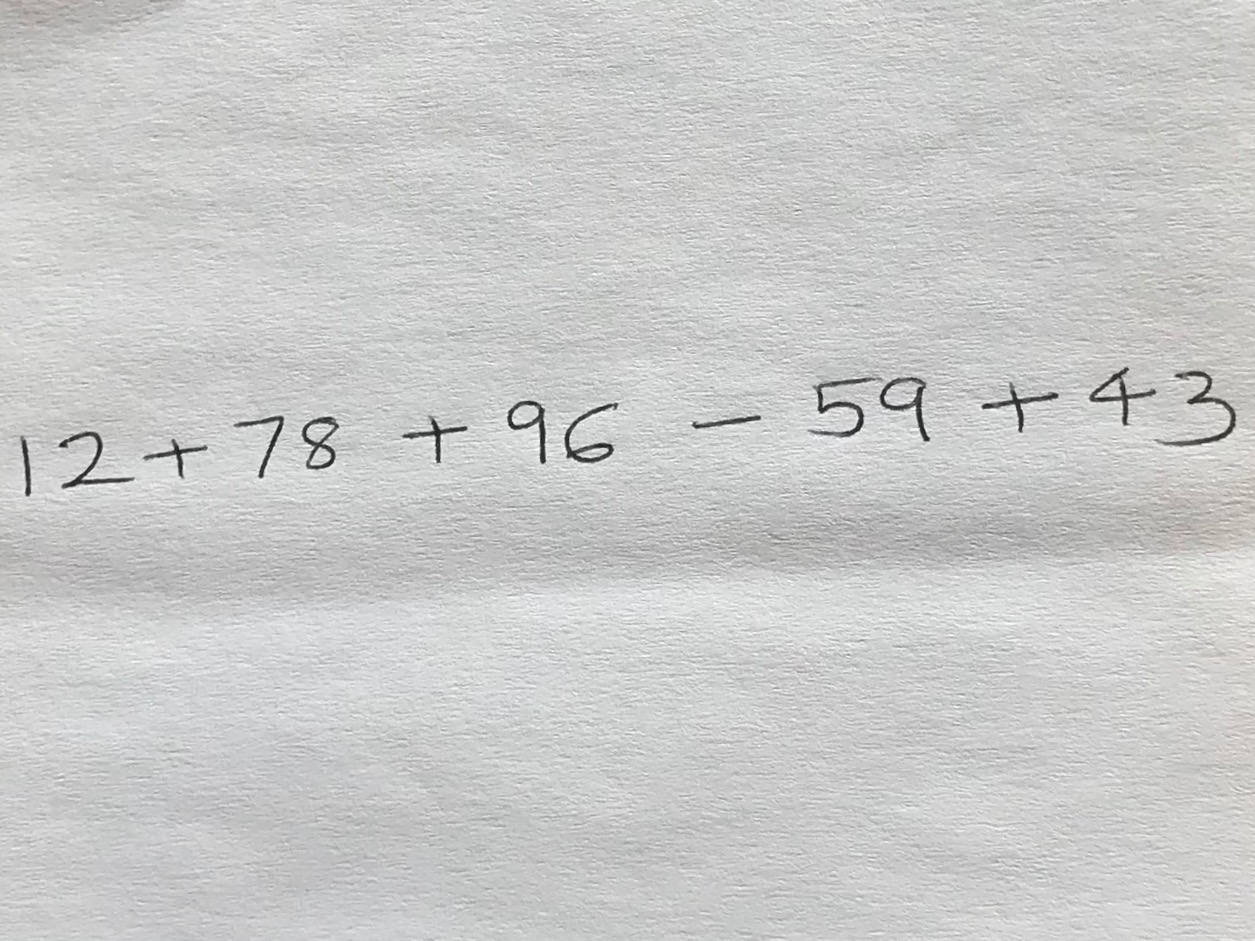 12 + 78 + 96 - 59 + 43